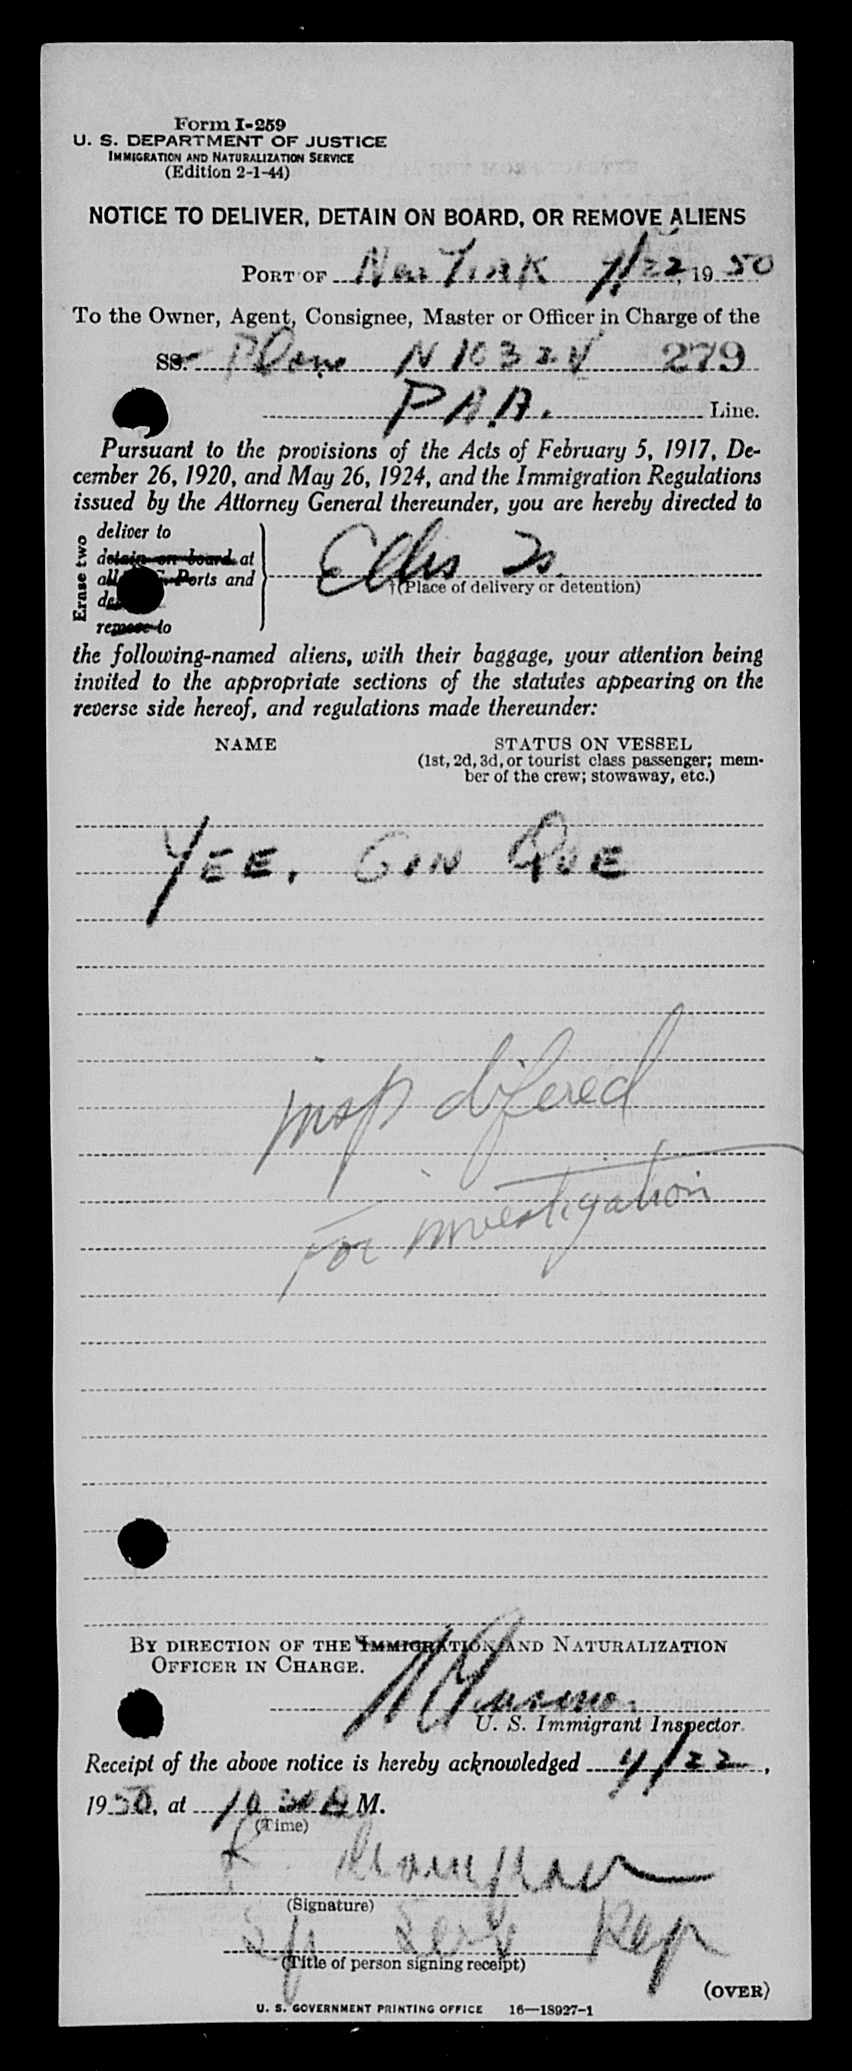 Form I-259
U. S. DEPARTMENT OF JUSTICE
IMMIGRATION AND NATURALIZATION SERVICE
(Edition 2-1-44)
NOTICE TO DELIVER, DETAIN ON BOARD, OR REMOVE ALIENS
PORT OF New York 4/22, 1950
To the Owner, Agent, Consignee, Master or Officer in Charge of the
SS. Plane N1032V 279
P.A.A. Line.
Pursuant to the provisions of the Acts of February 5, 1917, De-
cember 26, 1920, and May 26, 1924, and the Immigration Regulations
issued by the Attorney General thereunder, you are hereby directed to
Erase two
deliver to
detain on board at
all Ports and
remove to
Ellis Is.
(Place of delivery or detention)
the following-named aliens, with their baggage, your attention being
invited to the appropriate sections of the statutes appearing on the
reverse side hereof, and regulations made thereunder:
NAME STATUS ON VESSEL
(1st, 2d, 3d, or tourist class passenger; mem-
ber of the crew; stowaway, etc.)
YEE, GIN QUE
insp difered
For investigation
BY DIRECTION OF THE IMMIGRATION AND NATURALIZATION
OFFICER IN CHARGE.
U. S. Immigrant Inspector.
Receipt of the above notice is hereby acknowledged 4/22,
1950, at 10 30 A M.
(Time)
(Signature)
Sp Serv Rep
(Title of person signing receipt)
(OVER)
U. S. GOVERNMENT PRINTING OFFICE 16—18927-1